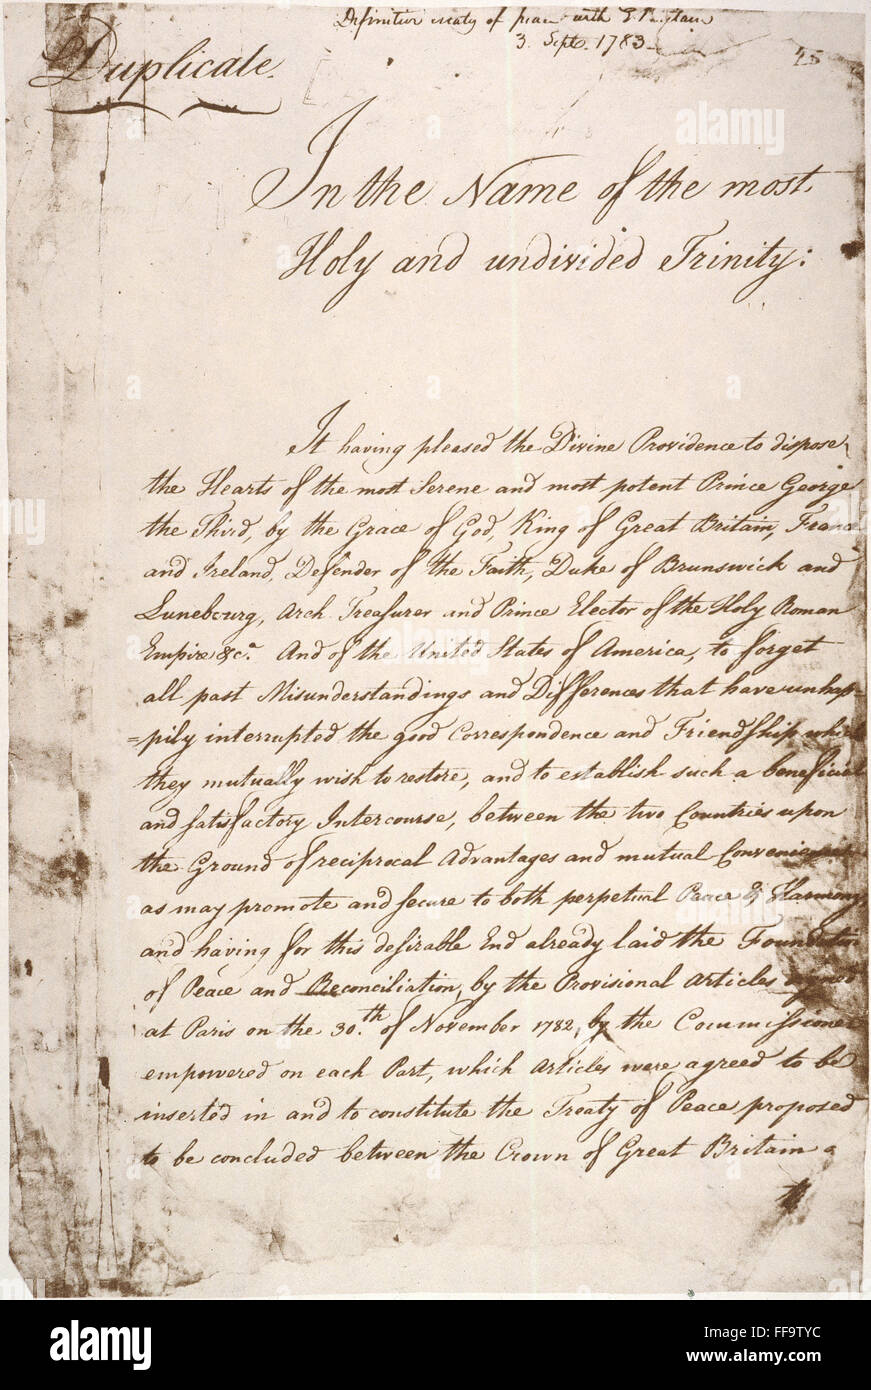 Definitive treaty of peace with G. Britain
3. Sept. 1783.
45
Duplicate.
In the Name of the most
Holy and undivided Trinity:
It having pleased the Divine Providence to dispose
the Hearts of the most Serene and most potent Prince George
the Third, by the Grace of God, King of Great Britain, France
and Ireland, Defender of the Faith, Duke of Brunswick and
Lunebourg, Arch Treasurer and Prince Elector of the Holy Roman
Empire &c.a And of the United States of America, to forget
all past Misunderstandings and Differences that have unhap-
=pily interrupted the good Correspondence and Friendship which
they mutually wish to restore, and to establish such a beneficial
and satisfactory Intercourse, between the two Countries upon
the Ground of reciprocal Advantages and mutual Convenience
as may promote and secure to both perpetual Peace & Harmony,
and having for this desirable End already laid the Foundation
of Peace and Reconciliation, by the Provisional Articles signed
at Paris on the 30.th of November 1782, by the Commissioners
empowered on each Part, which Articles were agreed to be
inserted in and to constitute the Treaty of Peace proposed
to be concluded between the Crown of Great Britain
alamy
a
alamy
Image ID: FF9TYC
www.alamy.com